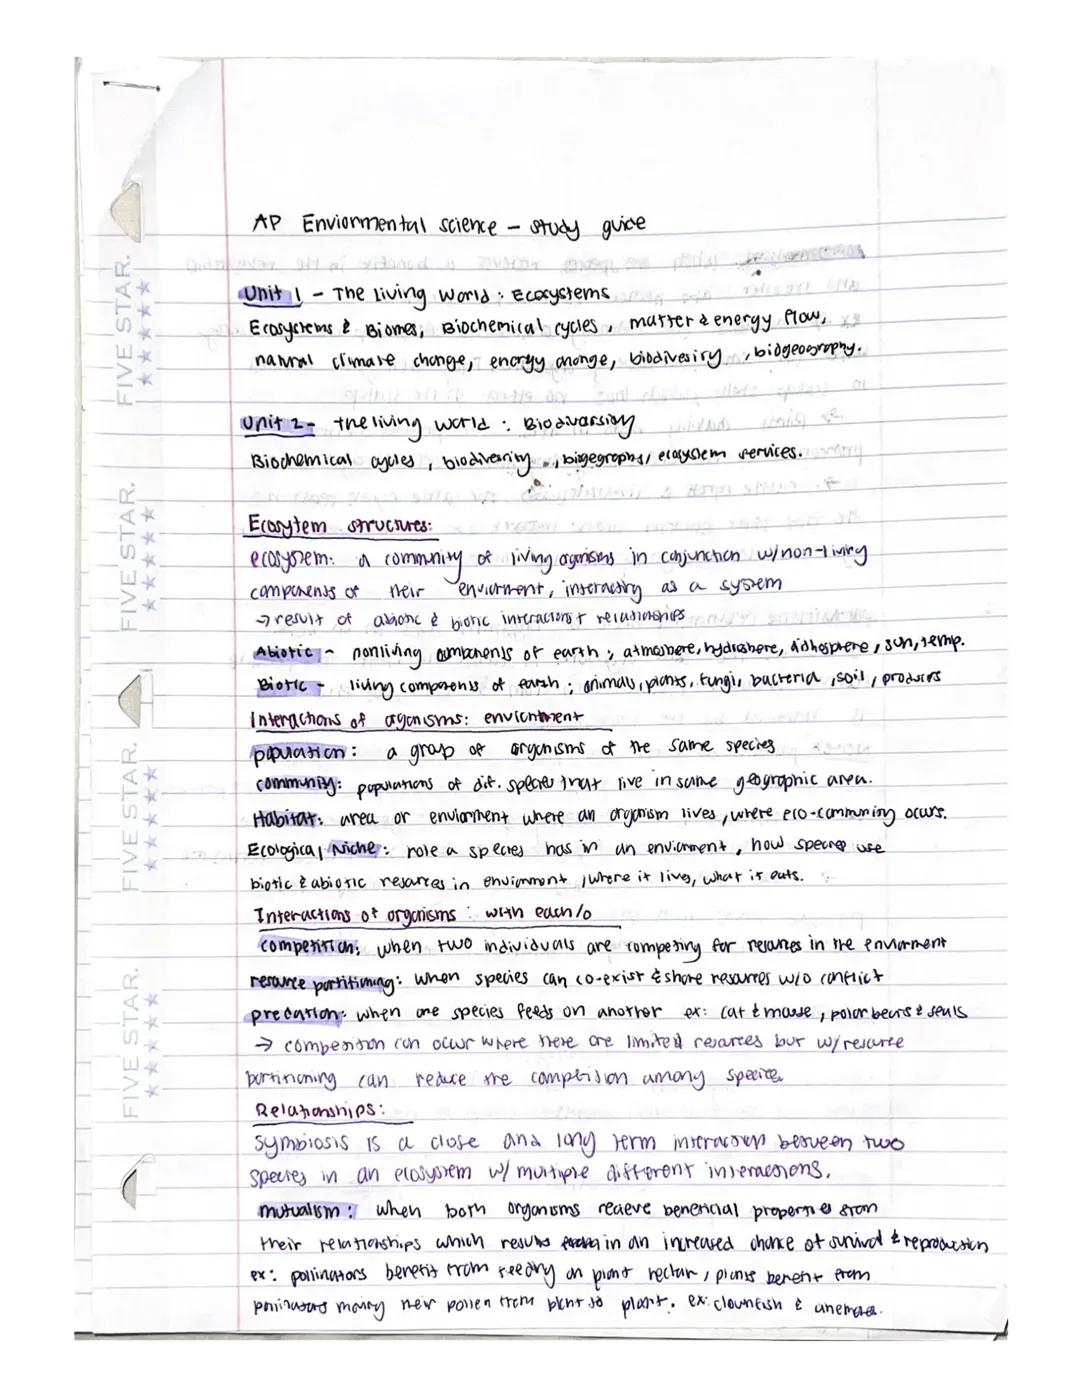 AP Enviornmental science - study guide
Unit 1 - The Living World: Ecosystems
Ecosystems & Biomes, Biochemical cycles, matter & energy flow,
natural climate change, energy change, biodivesiry, biogeography.
Unit 2 - the living world: Biodiversity
Biochemical cycles, biodiversity, biogegraphy, ecosystem services.
Ecosytem structures:
ecosystem: a community of living ogonisms in conjunction w/non-living
components of their enviorment, interacting as a system
→ result of abiotic & biotic interactions + relationships
Abiotic - nonliving components of earth; atmosphere, hydrosphere, , sun, temp.
Biotic - living components of earth; animals, plants, fungi, bacteria, soil, producers
Interactions of organisms: enviornment
population: a group of organisms of the same species
community: populations of dif. species that live in same geographic area.
Habitat: area or enviorment where an organism lives, where eco-community occurs.
Ecological Niche: role a species has in an enviorment, how species use
biotic & abiotic resources in enviornment, where it lives, what it eats.
Interactions of organisms: with each/o
competition: when two individuals are competing for resources in the enviorment
resource partitioning: when species can co-exist & share resources w/o conflict
predation: when one species feeds on another ex: cat & mouse, polar bears & seals
→ competition can occur where there are limited resources but w/resource
partitioning can reduce the competision among species.
Relationships:
Symbiosis is a close and long term interaction between two
species in an ecosystem w/ multiple different interactions.
mutualism: when both organisms recieve beneficial properties from
their relationships which results in an increased chance of survival & reproduction
ex: pollinators benefit from feeding on plant nectar, plants benefit from
pollinators moving their pollen from plant to plant. ex: clownfish &
FIVE STAR.
FIVE STAR.
FIVE STAR.
FIVE STAR.